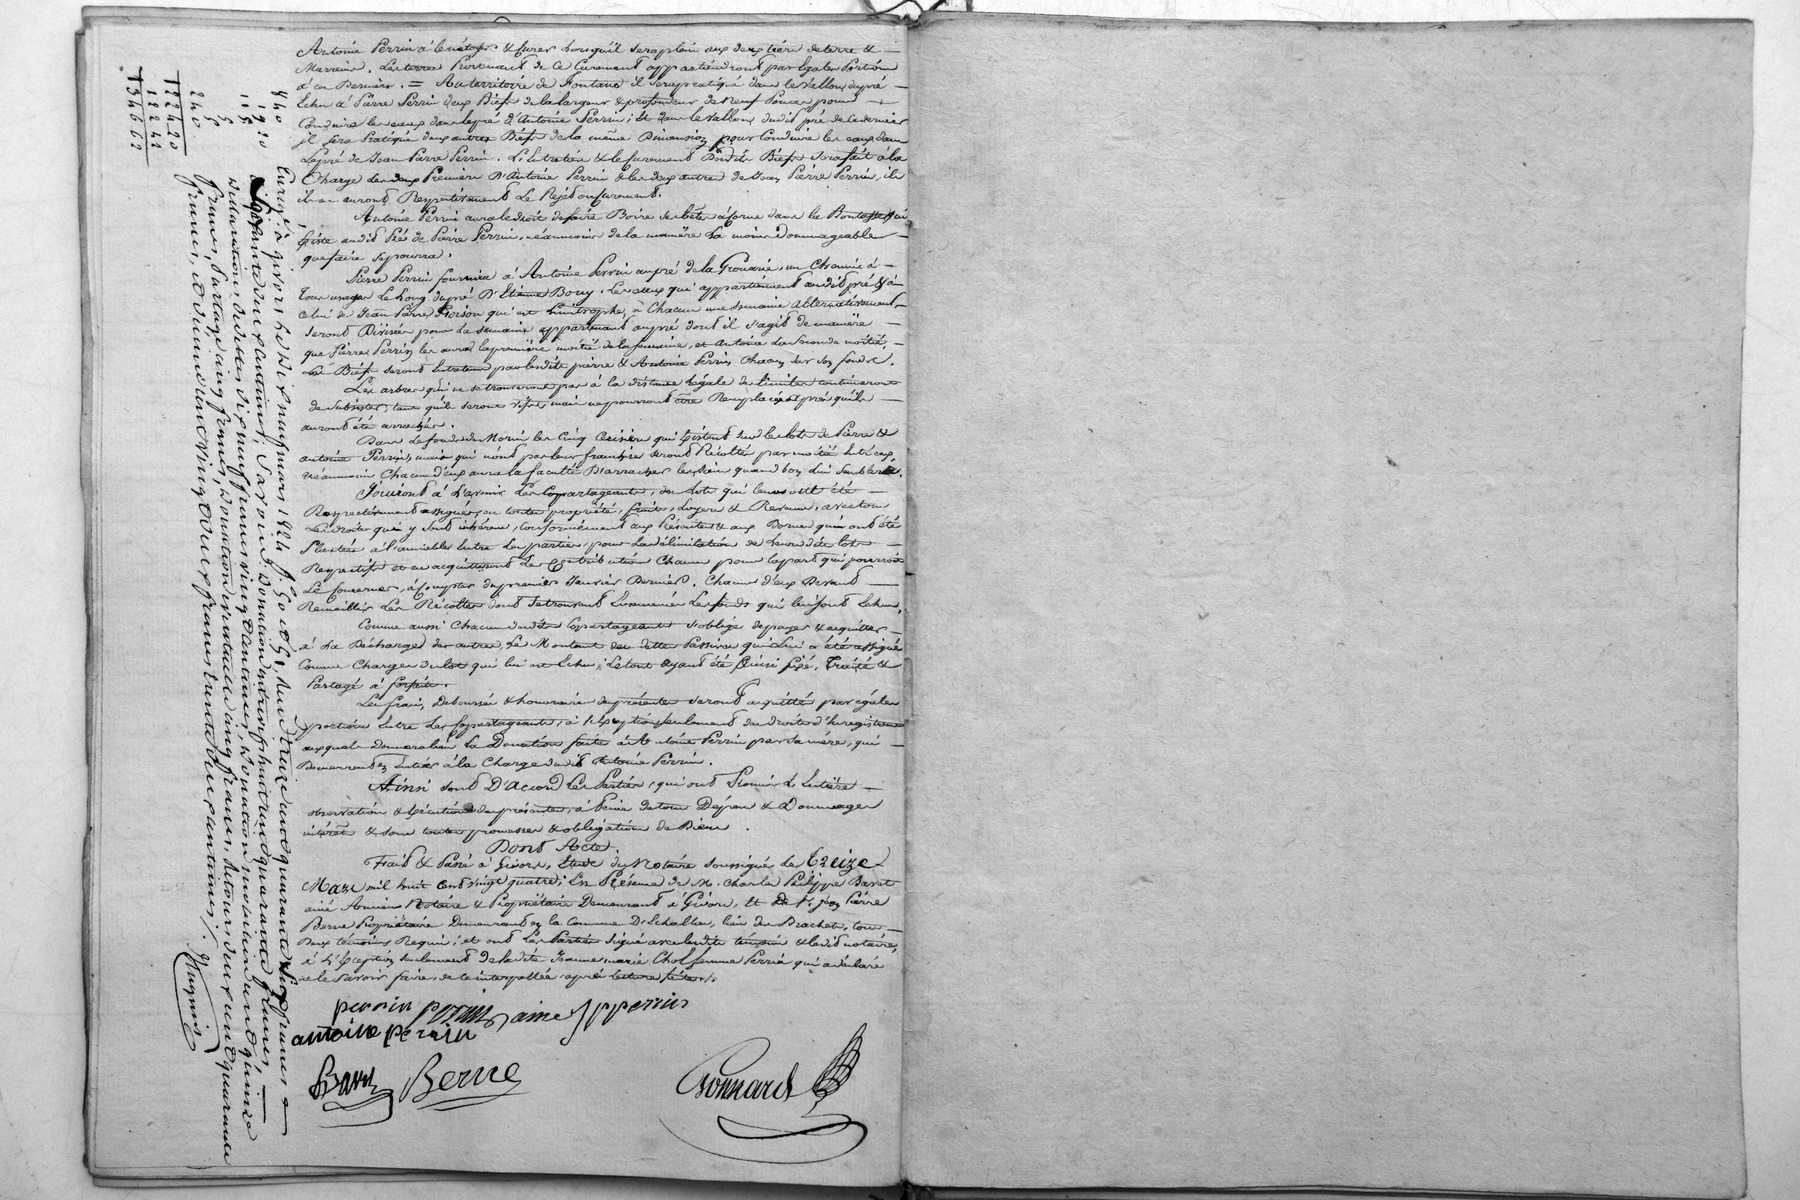 Antoine Perrin à & curer lorsqu'il sera plein aux deux tiers de terre &
Marrein. Les terres Provenant de ce Curement appartiendront par Egales Portions
à ce Dernier. = Au territoire de Fontane il sera pratiqué dans le Vallon du pré
Echu à Pierre Perrin deux Biefs de la largeur & profondeur de Neuf Pouces pour
Conduire les eaux dans le pré d'Antoine Perrin; Et dans le Vallon dudit pré de ce dernier
il sera Pratiqué deux autres Biefs de la même Dimension pour Conduire les eaux dans
Le pré de Jean Pierre Perrin. L'Entretien & le curement Desdits Biefs sera fait à la
Charge des deux Premiers d'Antoine Perrin & les deux autres de Jean Pierre Perrin, ils
en auront Respectivement Le Rejet du curement.
Antoine Perrin aura le droit de faire Boire ses bêtes à corne dans la Boutasse qui
Existe audit Pré de Pierre Perrin, néanmoins de la manière La moins Dommageable
que faire se pourra.
Pierre Perrin fournira à Antoine Perrin au pré de la un Chemin à
tous usages Le Long du pré D'Etienne Bony. Les eaux qui appartiennent audit pré & à
celui de Jean Pierre qui est limitrophe, à Chacun une semaine alternativement
Seront Divisées pour la semaine appartenant au pré dont il s'agit de manière
que Pierre Perrin les aura la première moitié de la semaine, et Antoine La Seconde moitié.
Les Biefs seront Entretenus par lesdits pierre & Antoine Perrin Chacun sur son fonds.
Les arbres qui ne se trouveront pas à la distance Légale des limites continueront
de Subsister, tant qu'ils seront vifs, mais ne pourront être Remplacés après qu'ils
auront été arrachés.
Dans Le fonds du Morin les Cinq Cerisiers qui Existent sur les lots de Pierre &
antoine Perrin, mais qui n'ont pas leur franchise seront Récoltés par moitié Entr'eux,
néanmoins Chacun d'eux aura la faculté D'arracher les siens quand bon Lui Semblera.
Jouiront à L'avenir Les Copartageants, des lots qui leurs ont été
Respectivement assignés, en toute propriété, fruits, Loyers & Revenus, avec tous
Les droits qui y sont inhérens, Conformément aux Présentes & aux Bornes qui ont été
Plantées à l'amiable Entre Les parties, pour La délimitation de leurs dits lots
Respectifs et en acquitteront Les Contributions Chacun pour la part qui pourrait
Le Concerner, à Compter du premier Janvier Dernier. Chacun d'eux Devant
Recueillir Les Récoltes dont se trouvent Ensemencés Les fonds qui lui sont Echus.
Comme aussi Chacun desdits Copartageants s'oblige de payer & acquitter
à La Décharge des autres, Le Montant des dettes Passives qui Lui a été assigné
Comme Charges du lot qui lui est Echu; Le tout ayant été Ainsi fixé, Traité &
Partagé à forfait.
Les frais, Deboursés & honoraires des présentes seront acquittés par égales
portions Entre Les Copartageants, à l'Exception seulement des droits d'Enregistrement
auxquels donnera lieu La Donation faite à Antoine Perrin par sa mère, qui
Demeureront En Entier à la Charge dudit Antoine Perrin.
Ainsi sont D'accord Les Parties, qui ont Promis L'Entière
observation & Exécution des présentes, à Peine de tous Dépens & Dommages
intérêts & sous toutes promesses & obligations de Biens.
Dont Acte.
Fait & Passé à Givors, Etude du Notaire soussigné Le Treize
Mars mil huit Cent Vingt quatre; En Présence de M. Charles Philippe Baret
ainé Ancien Notaire & Propriétaire Demeurant à Givors, Et De Sr. Jean Pierre
Berne Propriétaire Demeurant en la Commune D'Echallas, lieu de Brachet, tous
Deux témoins Requis; et ont Les Parties signé avec lesdits témoins & ledit notaire,
à L'Exception seulement de ladite Jeanne marie Chol femme Perrin qui a déclaré
ne le Savoir faire, de ce interpellée après Lecture faite./.
perrin perrin ainé J p perrin
antoine perrin
Baret Berne
Bonnard
Enregistré à givors le dix neuf mars 1824 fo. 50 et 51, Reçu treize cent quarante six francs
soixante deux centimes; Savoir: donation entre vifs huit cent quarante francs,
Déclaration de dettes dix neuf francs vingt centimes, donation mobilière cent quinze
francs, partage cinq francs, donation mutuelle cinq francs, retour deux cent quarante
francs, et décime cent vingt deux francs quarante deux centimes./.
840
19 20
115
5
5
240
1224 20
122 42
1346 62